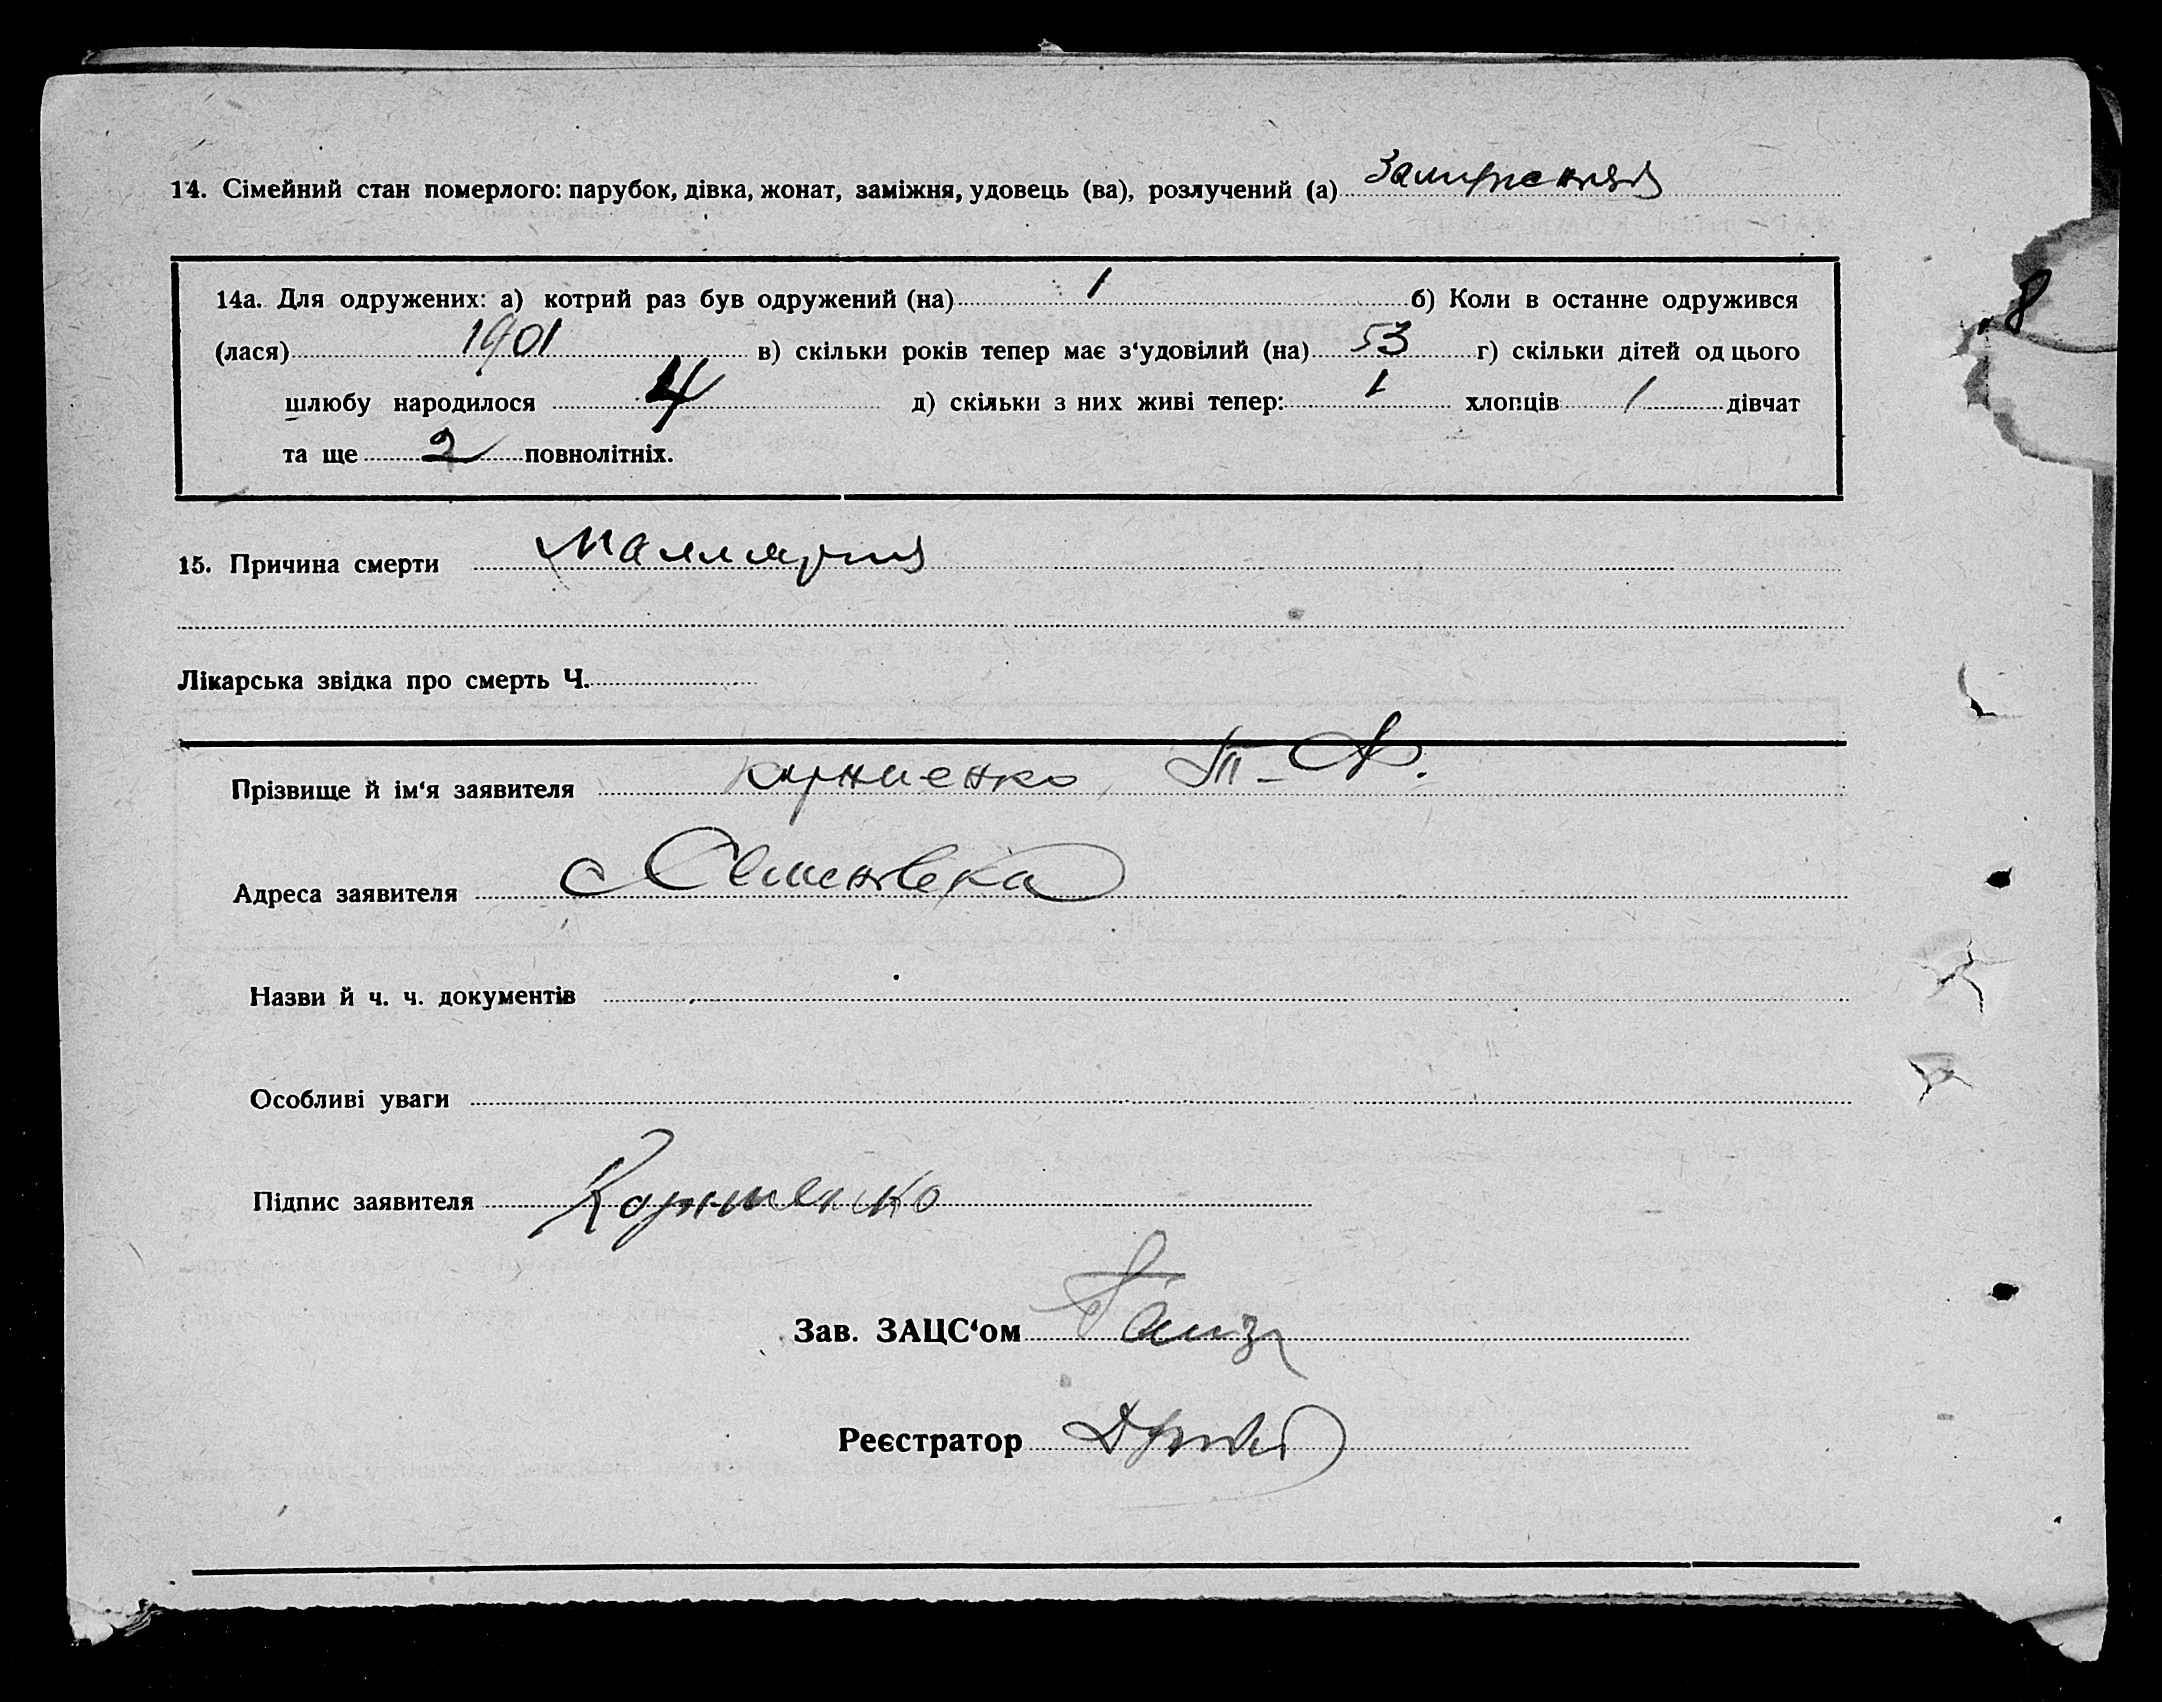 14. Сімейний стан померлого: парубок, дівка, жонат, заміжня, удовець (ва), розлучений (а)
14а. Для одружених: а) котрий раз був одружений (на) 1 б) Коли в останнє одружився
(лася) 1901 в) скільки років тепер має з‘удовілий (на) 53 г) скільки дітей од цього
шлюбу народилося 4 д) скільки з них живі тепер: 1 хлопців 1 дівчат
та ще 2 повнолітніх.
8
15. Причина смерти Маллярия
Лікарська звідка про смерть Ч.
Прізвище й ім‘я заявителя Корниенко Т-А.
Адреса заявителя с Семеновка
Назви й ч. ч. документів
Особливі уваги
Підпис заявителя Корниенко
Зав. ЗАЦС‘ом
Реєстратор